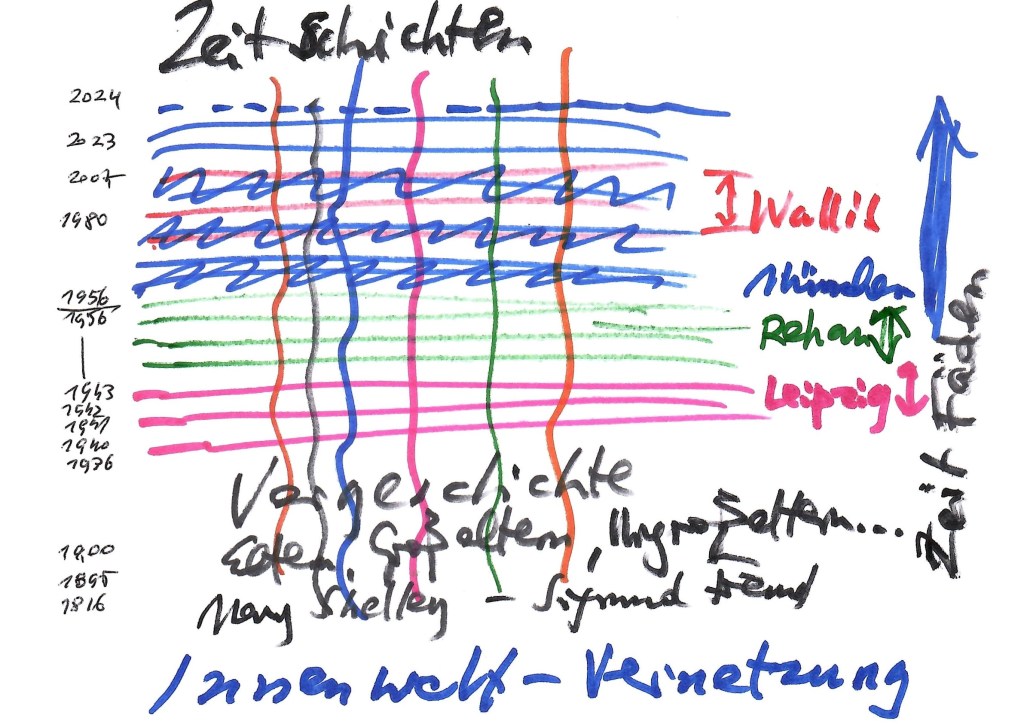 Zeitschichten
2024
2023
2007
1980
Wallis
München
1956
1956
Rehau
1943
Leipzig
1942
1941
1940
1936
Zeit fäden
Vorgeschichte
Eltern, Großeltern, Urgroßeltern....
1900
1895
1816
Mary Shelley – Sigmund Freud
Innenwelt-Vernetzung